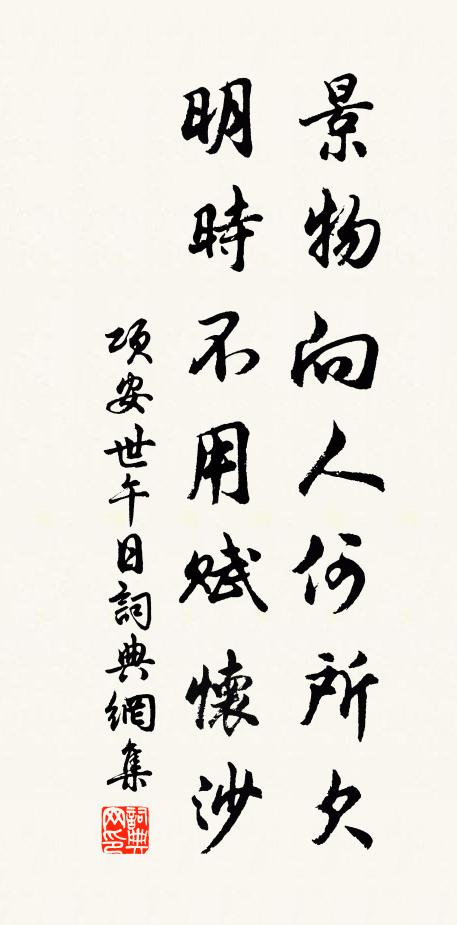 景物向人何所欠
明時不用賦懷沙
項安世午日詞典網集
詞典网印